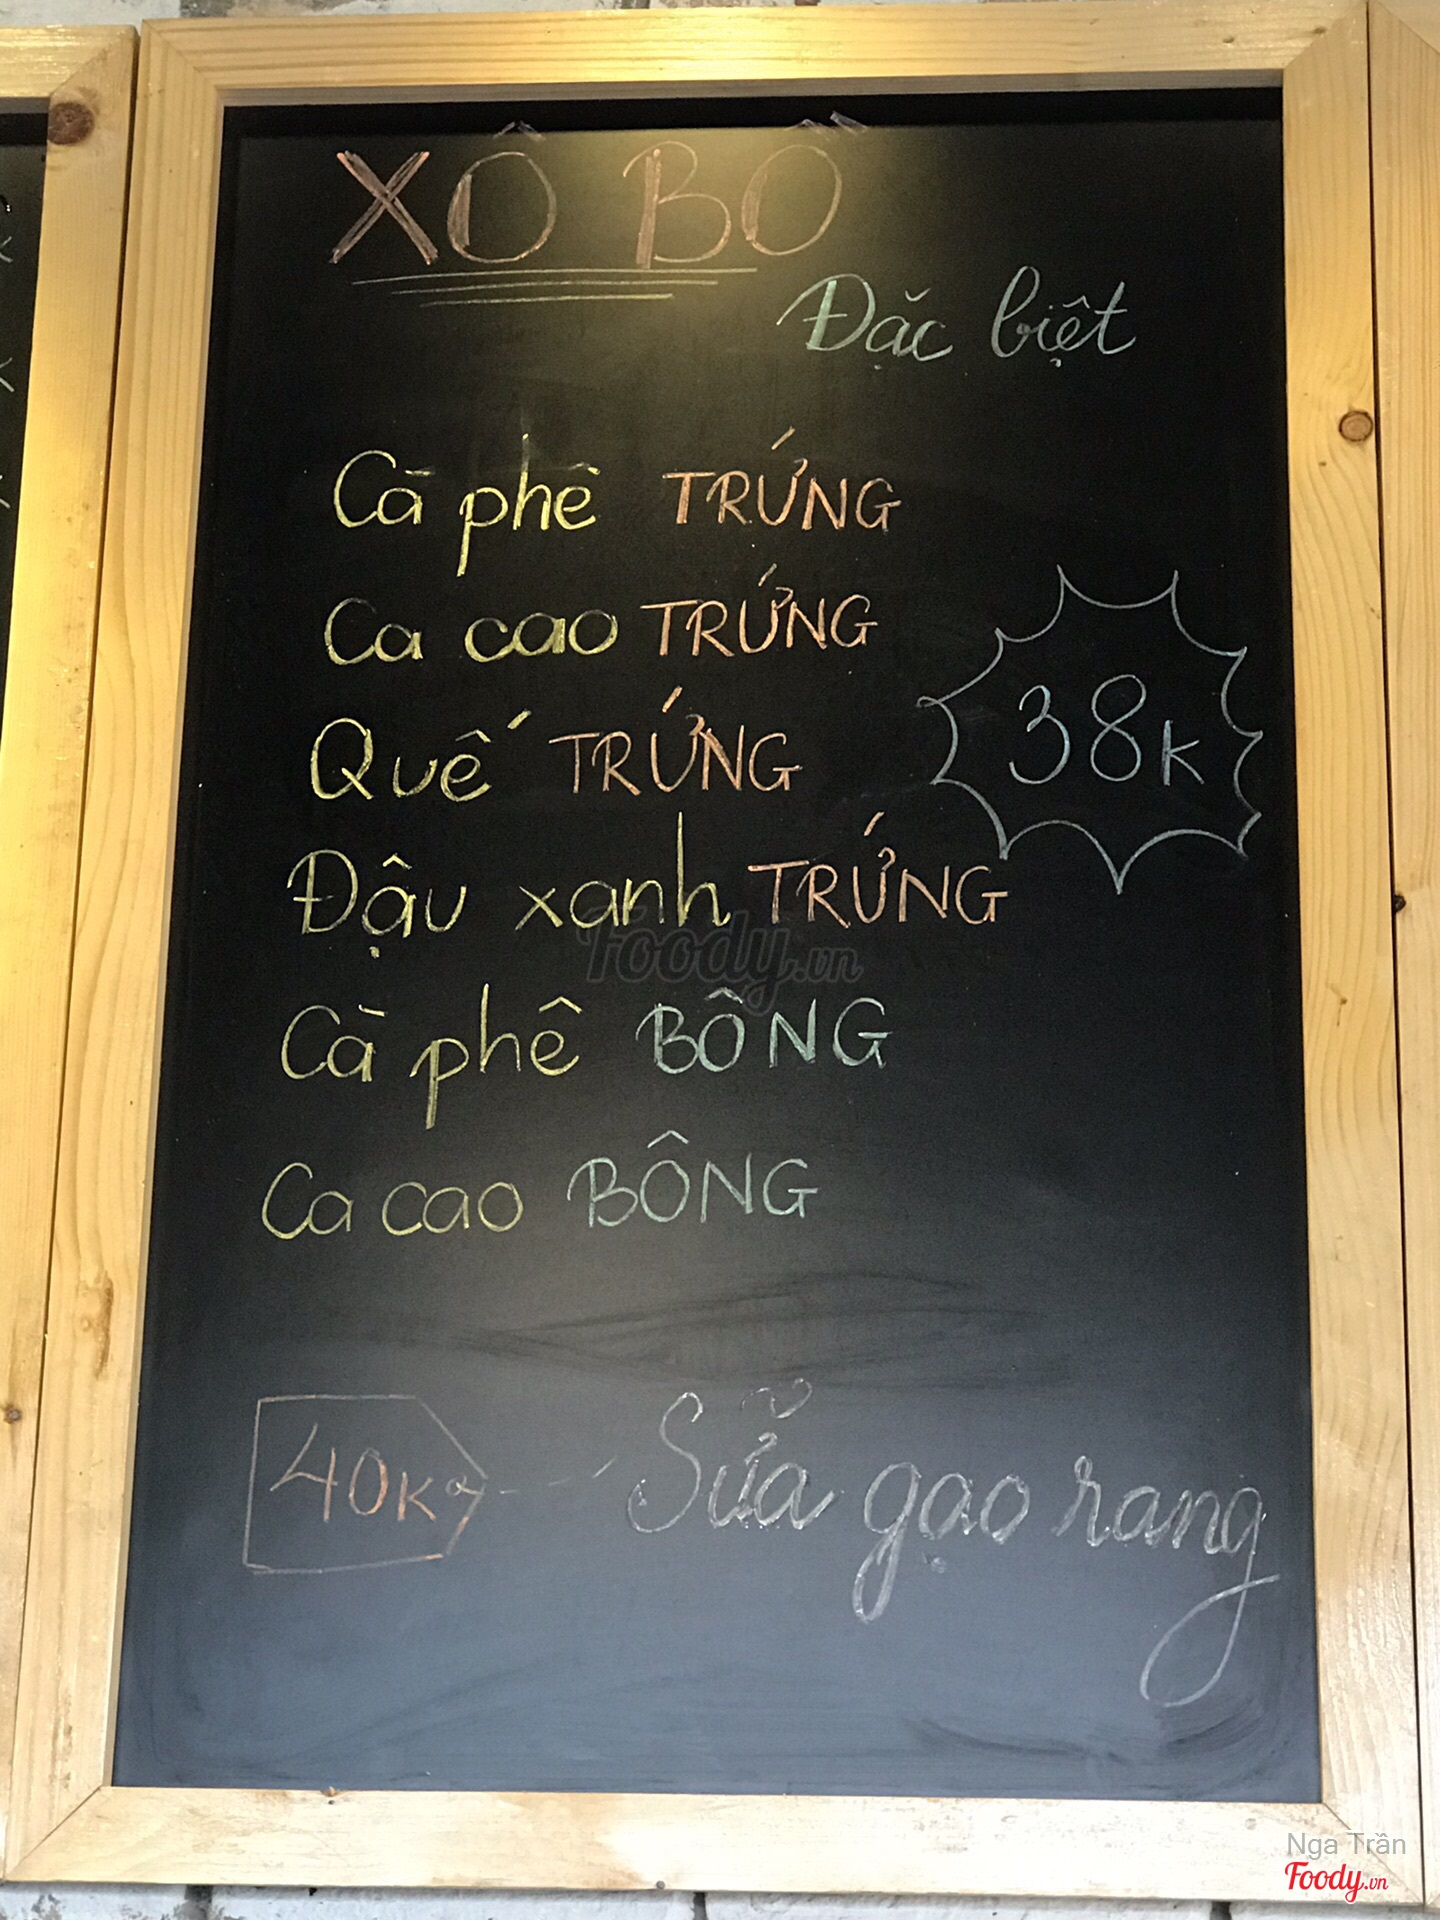 XÔ BÔ
Đặc biệt
Cà phê TRỨNG
Ca cao TRỨNG
Quế TRỨNG
38K
Đậu xanh TRỨNG
Foody.vn
Cà phê BÔNG
Ca cao BÔNG
40K
Sữa gạo rang
Nga Trần
Foody.vn